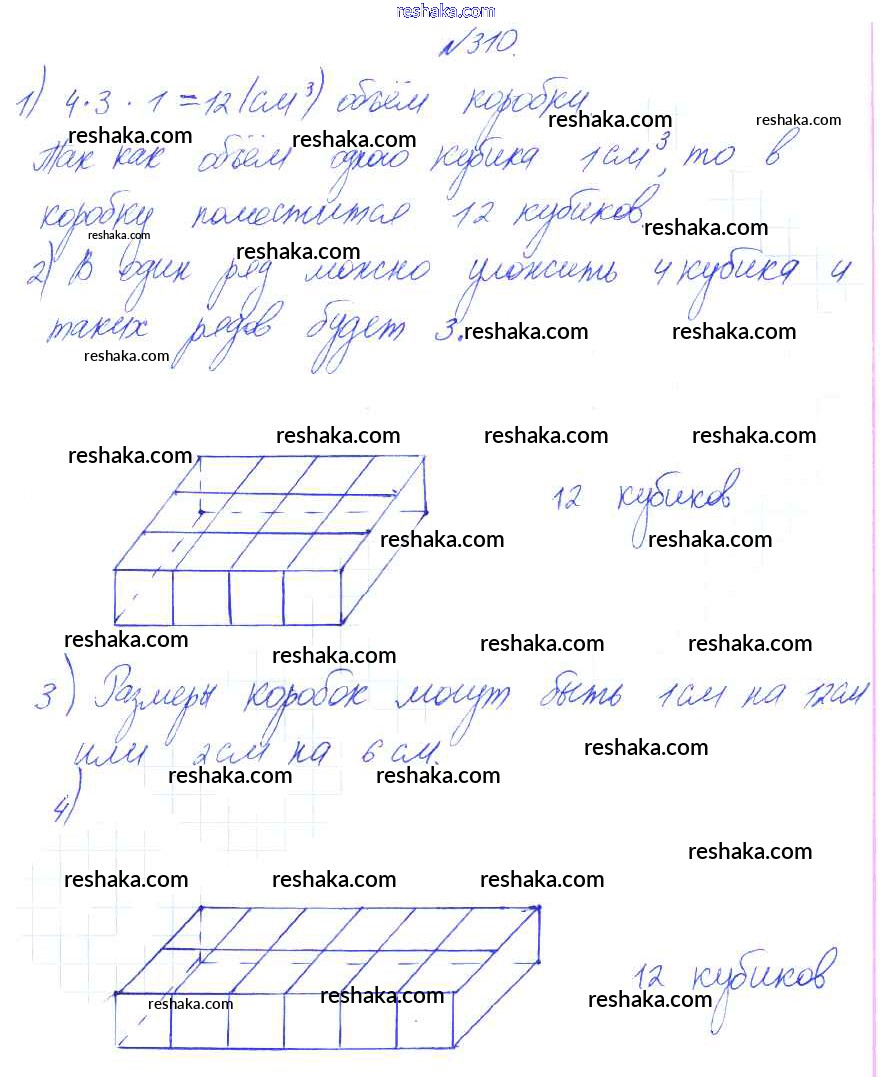 reshaka.com
№310.
1) 4·3·1=12(см³) объём коробки
reshaka.com reshaka.com reshaka.com reshaka.com
Так как объём одного кубика 1см³, то в
коробку поместится 12 кубиков.
reshaka.com reshaka.com reshaka.com
2) В один ряд можно уложить 4 кубика и
таких рядов будет 3. reshaka.com reshaka.com
reshaka.com
reshaka.com reshaka.com reshaka.com reshaka.com
12 кубиков
reshaka.com reshaka.com
reshaka.com reshaka.com reshaka.com reshaka.com
3) Размеры коробок могут быть 1см на 12см
или 2см на 6см. reshaka.com
reshaka.com reshaka.com
4)
reshaka.com
reshaka.com reshaka.com reshaka.com
12 кубиков
reshaka.com reshaka.com reshaka.com